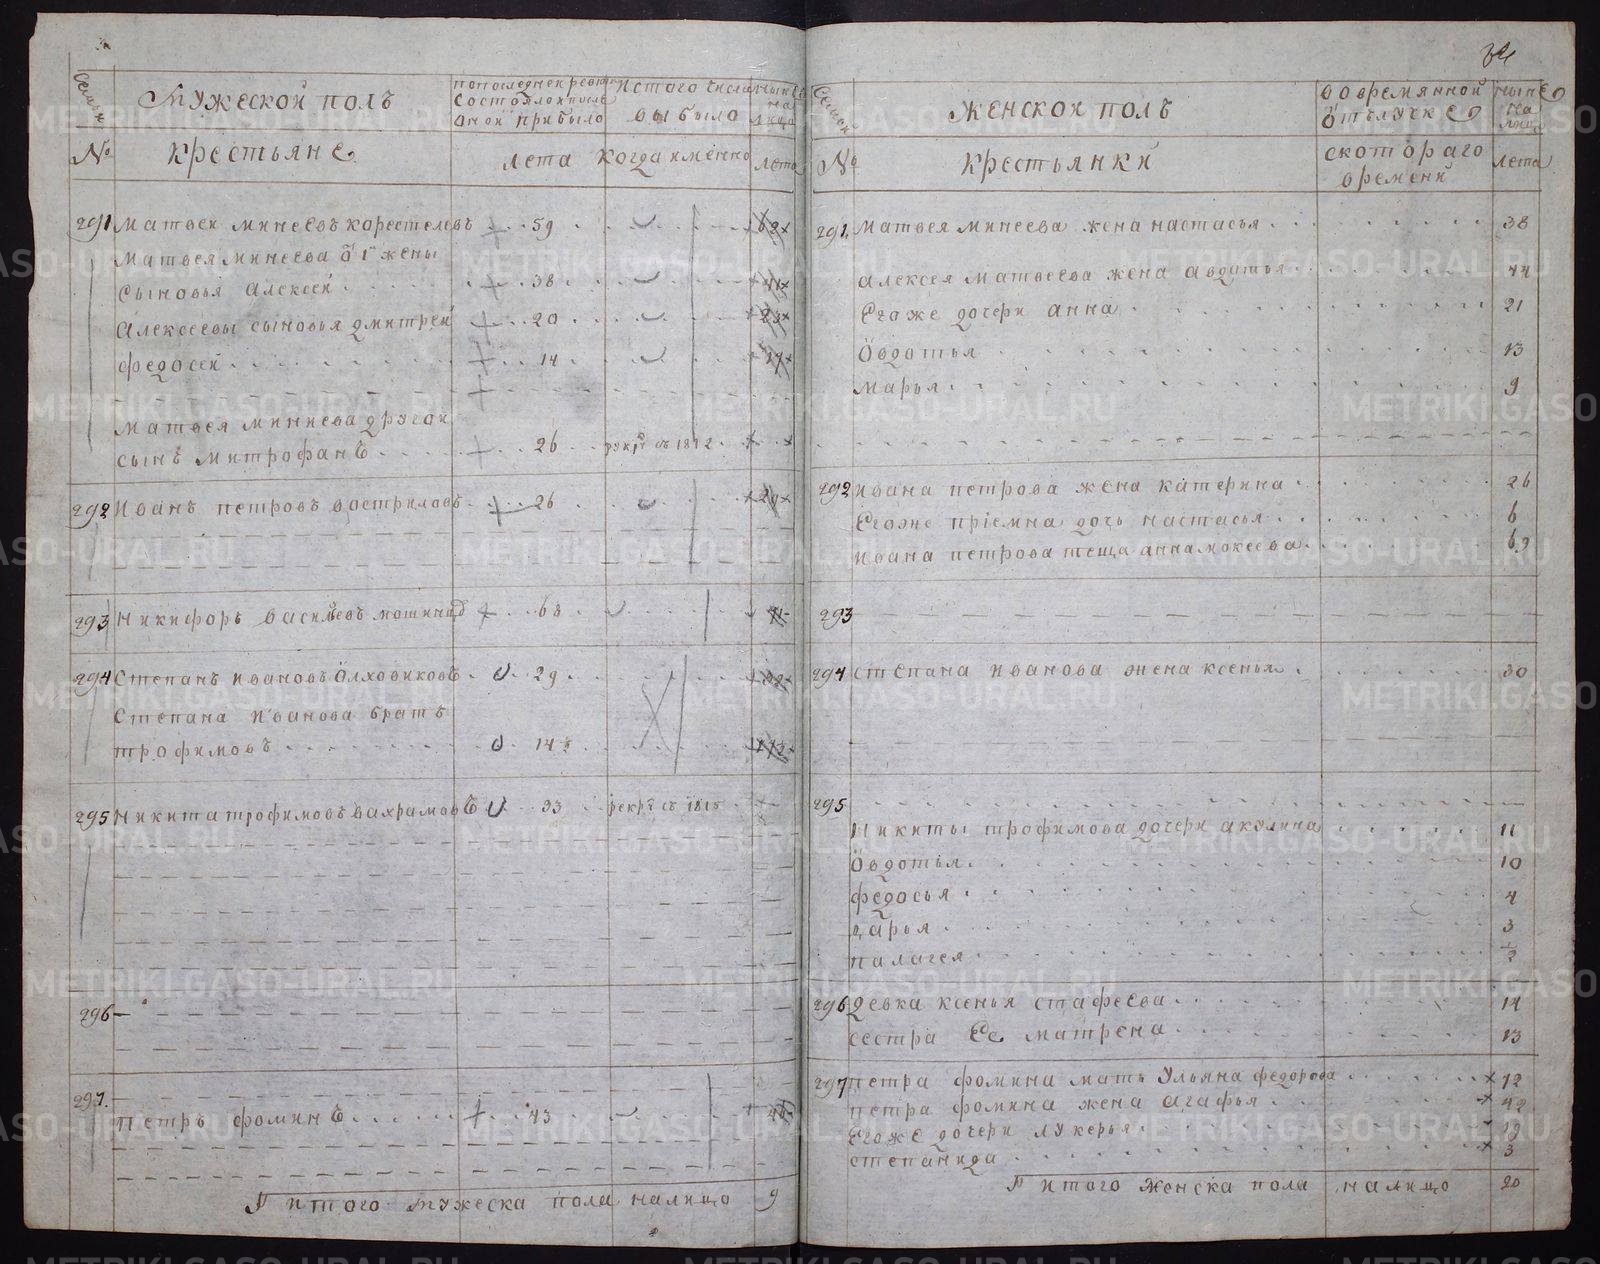 Семьи
Мужеской полъ
Состояло и после
оной прибыло
Истого числа
выбыло
ныне
на
лицо
№
Крестьяне
лета
когда именно
лета
291
Матвеи минеевъ коростелевъ
59
62
Матвея минеева от 1й жены
Сыновья алексеи
38
41
алексеевы сыновья дмитреи
20
23
федосеи
14
17
Матвея минеева другои
сынъ митрофанъ
26
рекрут съ 1812
292
Иванъ петровъ востриловъ
26
29
293
Никифоръ васильевъ
68
71
294
Степанъ ивановъ олховиковъ
29
32
Степана иванова братъ
трофимовъ
14
295
Никита трофимовъ вахрамовъ
33
рекрут съ 1815
296
297.
петръ фоминъ
43
46
итого мужеска пола налицо
9
Семьи
Женскои полъ
во временной
отълучке
ныне
на
лицо
№
крестьянки
скотораго
времени
лета
291.
Матвея минеева жена настасья
38
алексея матвеева жена авдотья
44
Егоже дочери анна
21
Овдотья
13
марья
9
292
Ивана петрова жена катерина
26
Егоже пріемна дочь настасья
6
Ивана петрова теща анна мокеева
69
293
294
степана иванова жена ксенья
30
295
Никиты трофимова дочери акулина
11
Овдотья
10
федосья
4
дарья
3
палагея
296
девка ксенья стафеева
14
сестра Ее матрена
13
297
петра фомина мать Ульяна федорова
72
петра фомина жена агафья
42
Егоже дочери лукерья
19
степанида
3
итого женска пола налицо
20
METRIKI.GASO-URAL.RU